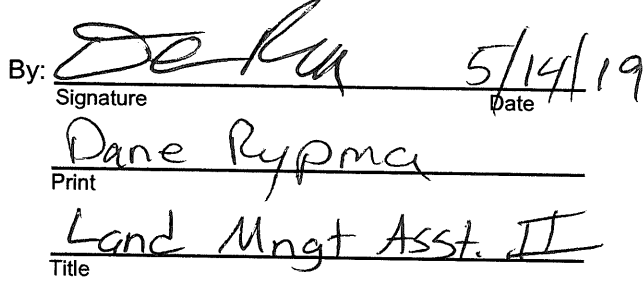 By: 5/14/19
Signature Date
Dane Rypma
Print
Land Mngt Asst. II
Title